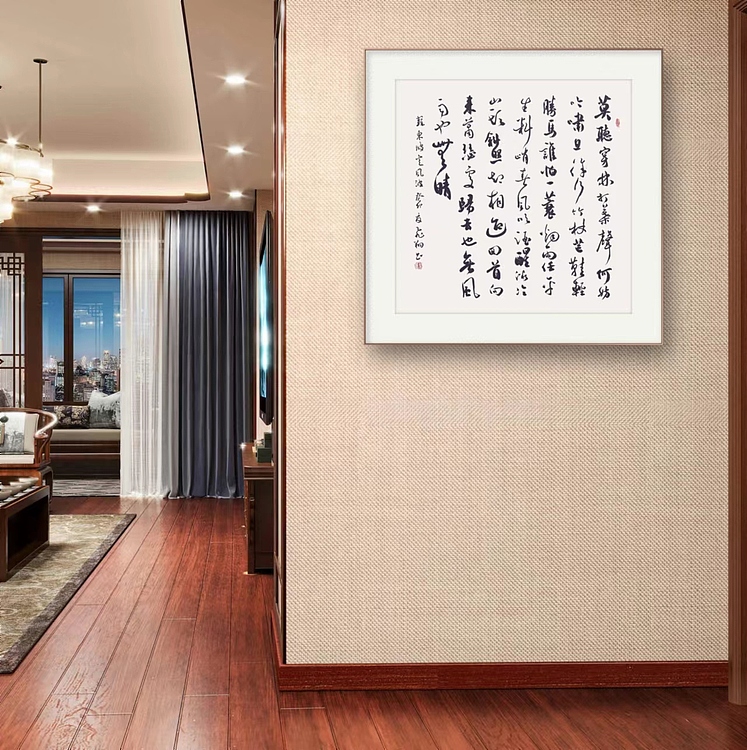 莫聽穿林打葉聲何妨
吟嘯且徐行竹杖芒鞋輕
勝馬誰怕一蓑烟雨任平
生料峭春風吹酒醒微冷
山頭斜照却相迎回首向
來蕭瑟處歸去也無風
雨也無晴
蘇東坡定風波癸卯